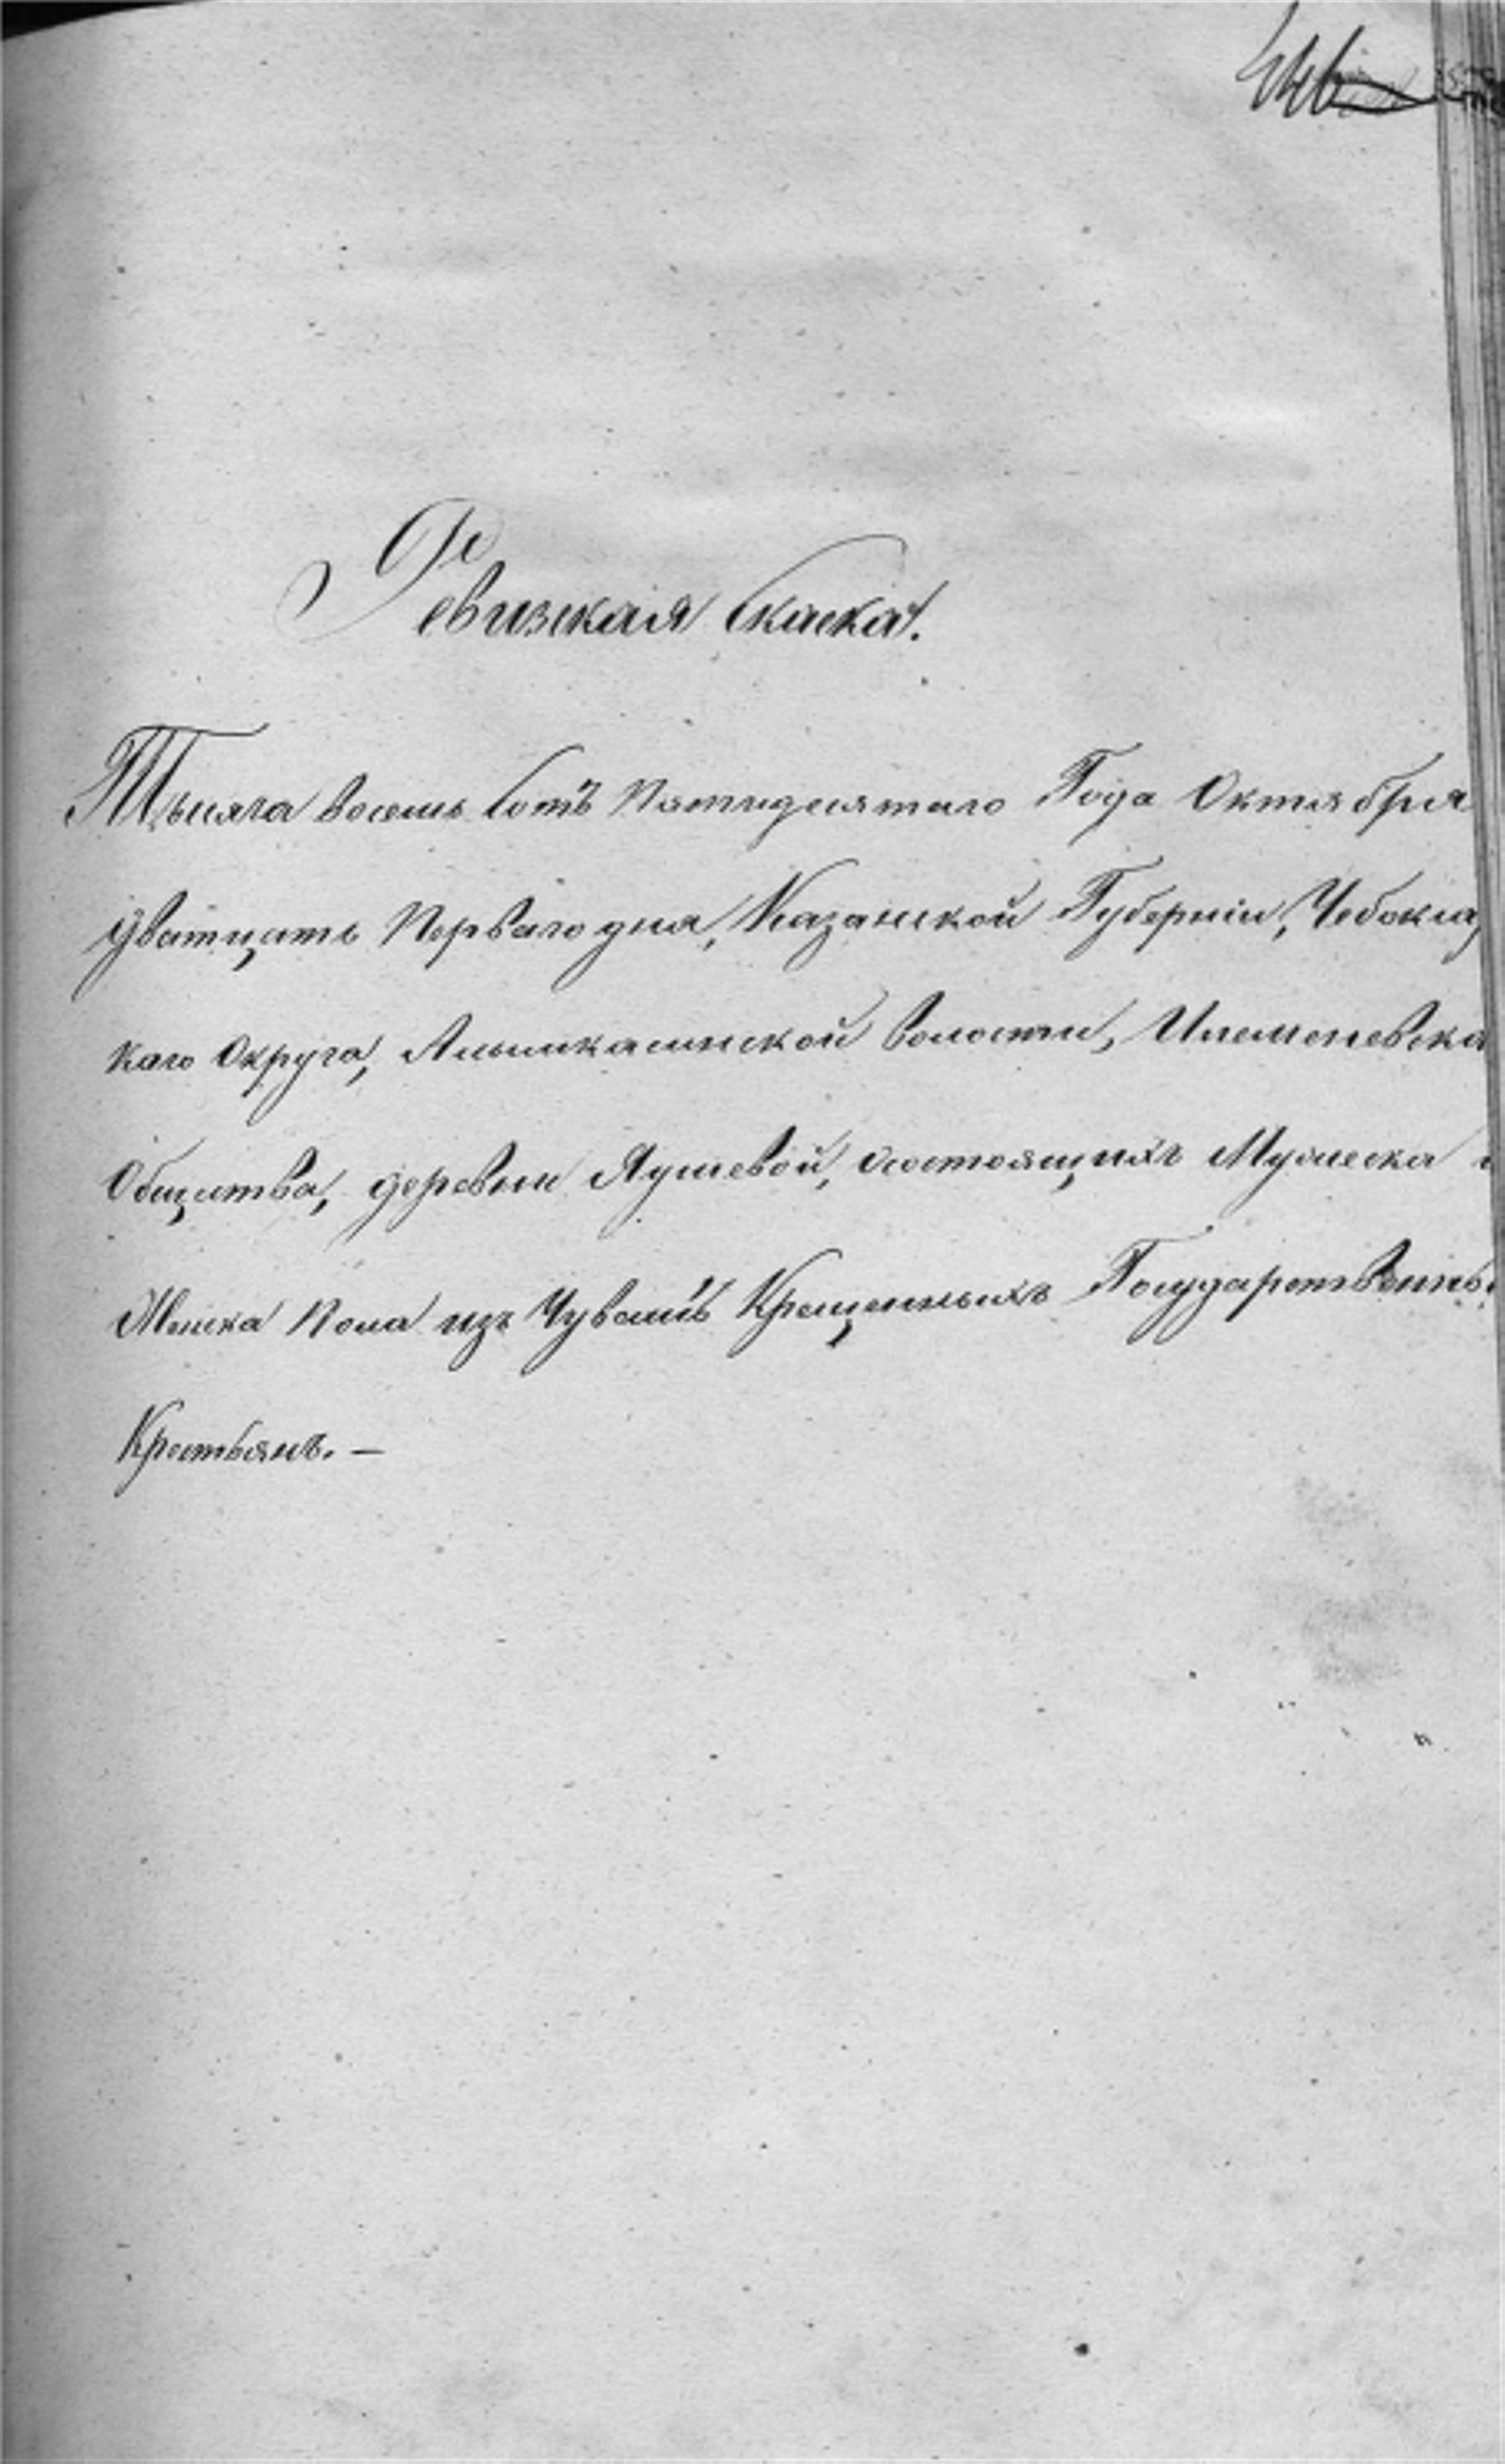 Ревизская Скаска.
Тысяча восемь сотъ Пятидесятаго Года Октября
дватцать Перваго дня, Казанской Губерніи, Чебокса
каго Округа, Алымкасинской волости, Ишеменевска
Общества, деревни Яушевой, состоящихъ Мужеска и
Женска Пола изъ Чувашъ Крещенныхъ Государственны
Крестьянъ. —